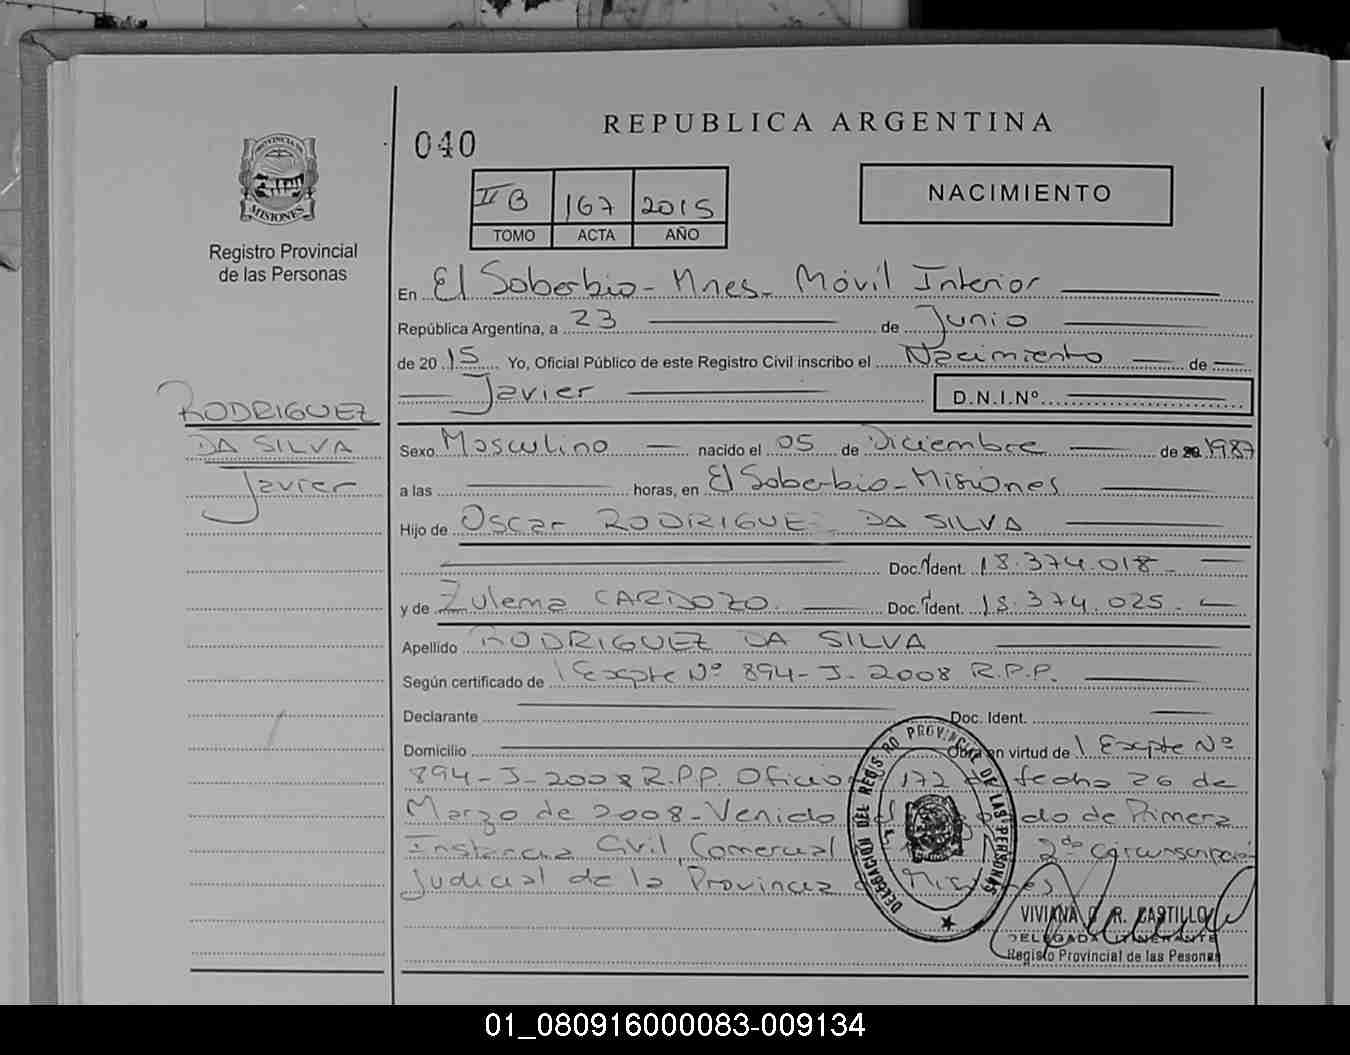 REPUBLICA ARGENTINA
040
PROVINCIA DE MISIONES
Registro Provincial
de las Personas
II B 167 2015
TOMO ACTA AÑO
NACIMIENTO
En El Soberbio - Mnes - Móvil Interior
República Argentina, a 23 de Junio
de 2015 Yo, Oficial Público de este Registro Civil inscribo el Nacimiento de
Javier
D.N.I.Nº
RODRIGUEZ
DA SILVA
Javier
Sexo Masculino nacido el 05 de Diciembre de 1987
a las horas, en El Soberbio - Misiones
Hijo de Oscar RODRIGUEZ DA SILVA
Doc. Ident. 18.374.018
y de Zulema CARDOZO Doc. Ident. 18.374.025
Apellido RODRIGUEZ DA SILVA
Según certificado de Expte Nº 894-J-2008 R.P.P.
Declarante Doc. Ident.
Domicilio Obra en virtud de Expte Nº
894-J-2008 R.P.P. Oficio 172 fecha 26 de
Marzo de 2008 - Venido de Primera
Instancia Civil, Comercial 2da circunscripción
Judicial de la Provincia de Misiones
DELEGACION DEL REGISTRO PROVINCIAL DE LAS PERSONAS
VIVIANA R. CASTILLO
DELEGADA ITINERANTE
Registo Provincial de las Pesonas
01_080916000083-009134